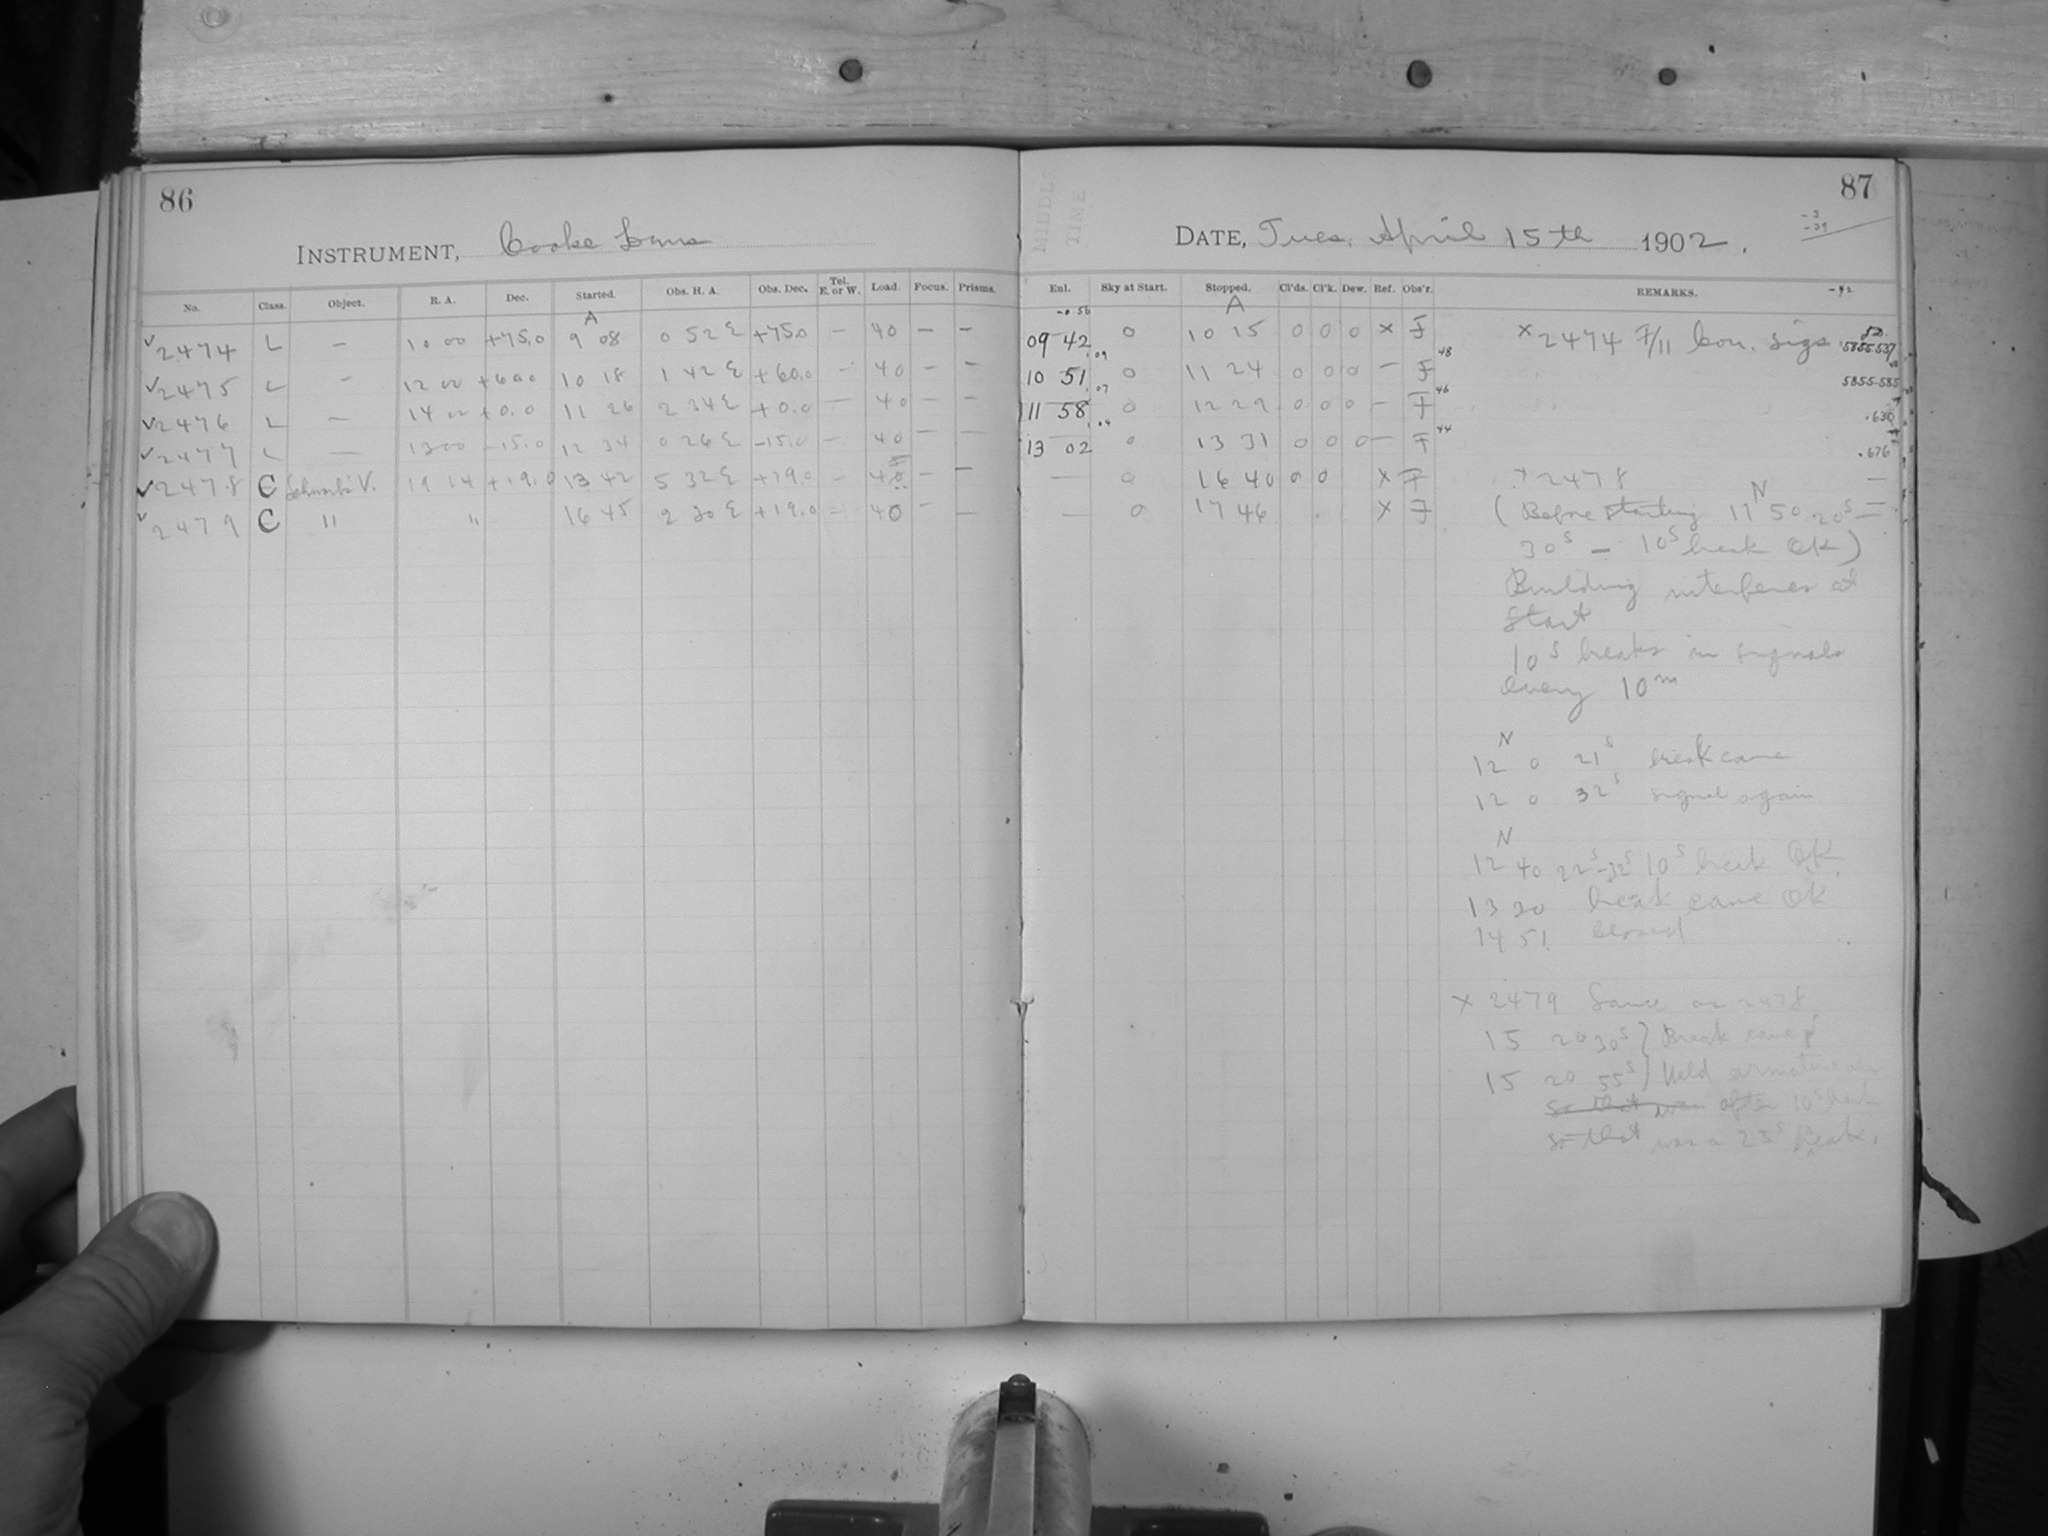 86
INSTRUMENT, Cooke Lens
No. Class. Object. R. A. Dec. Started. Obs. H. A. Obs. Dec. Tel. E. or W. Load. Focus. Prisms.
A
✓2474 L — 10 00 +75.0 9 08 0 52 E +75.0 — 40 — —
✓2475 L — 12 00 +60.0 10 18 1 42 E +60.0 — 40 — —
✓2476 L — 14 00 +0.0 11 26 2 34 E +0.0 — 40 — —
✓2477 L — 13 00 -15.0 12 34 0 26 E -15.0 — 40 — —
✓2478 C V. 19 14 +19.0 13 42 5 32 E +19.0 — 40 — —
✓2479 C " " 16 45 2 30 E +19.0 — 40 — —
87
MIDDLE TIME
DATE, Tues. April 15th 1902.
-3
-39
Enl. Sky at Start. Stopped. Cl'ds. Cl'k. Dew. Ref. Obs'r. REMARKS. -42
-0.56 A
09 42 0 10 15 0 0 0 x F x 2474 F/11 Con. sigs 5855.537
10 51 .09 0 11 24 0 0 0 — F 48 5855.585
11 58 .07 0 12 29 0 0 0 — F 46 .630
13 02 .04 0 13 31 0 0 0 — F 44 .676
— 0 16 40 0 0 x F x 2478 —
— 0 17 46 x F (Before starting 11 N 50 20s — —
30s — 10s break OK)
Building interferes at
start
10s breaks in signals
every 10m
N
12 0 21s break came
12 0 32s signal again
N
12 40 22s-32s 10s break OK
13 20 break came OK
14 51 closed
x 2479 Same as 2478
15 20 30s } Break came
15 20 55s } Held armature
so that was after 10s break
so that was a 25s break.